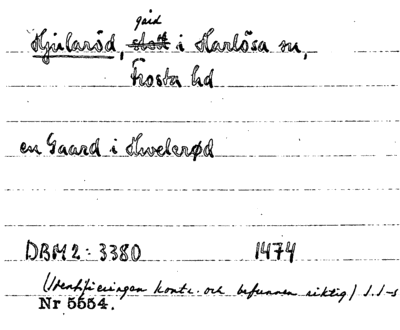 gård
Hjularöd, slott i Harlösa sn,
Frosta hd
en Gaard i Hwelerød
DBM 2: 3380 1474
(Identifieringen kontr. och befunnen riktig) I.I-s
Nr 5554.